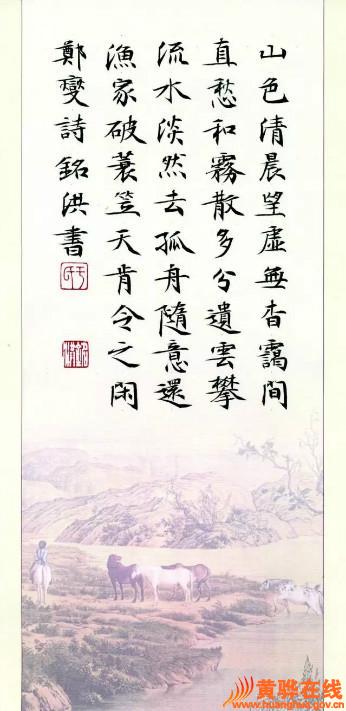 山色清晨望虛無杳靄間
直愁和霧散多兮遺雲攀
流水淡然去孤舟隨意還
漁家破蓑笠天肯令之閑
鄭燮詩銘洪書
黄骅在线
www.huanghua.gov.cn